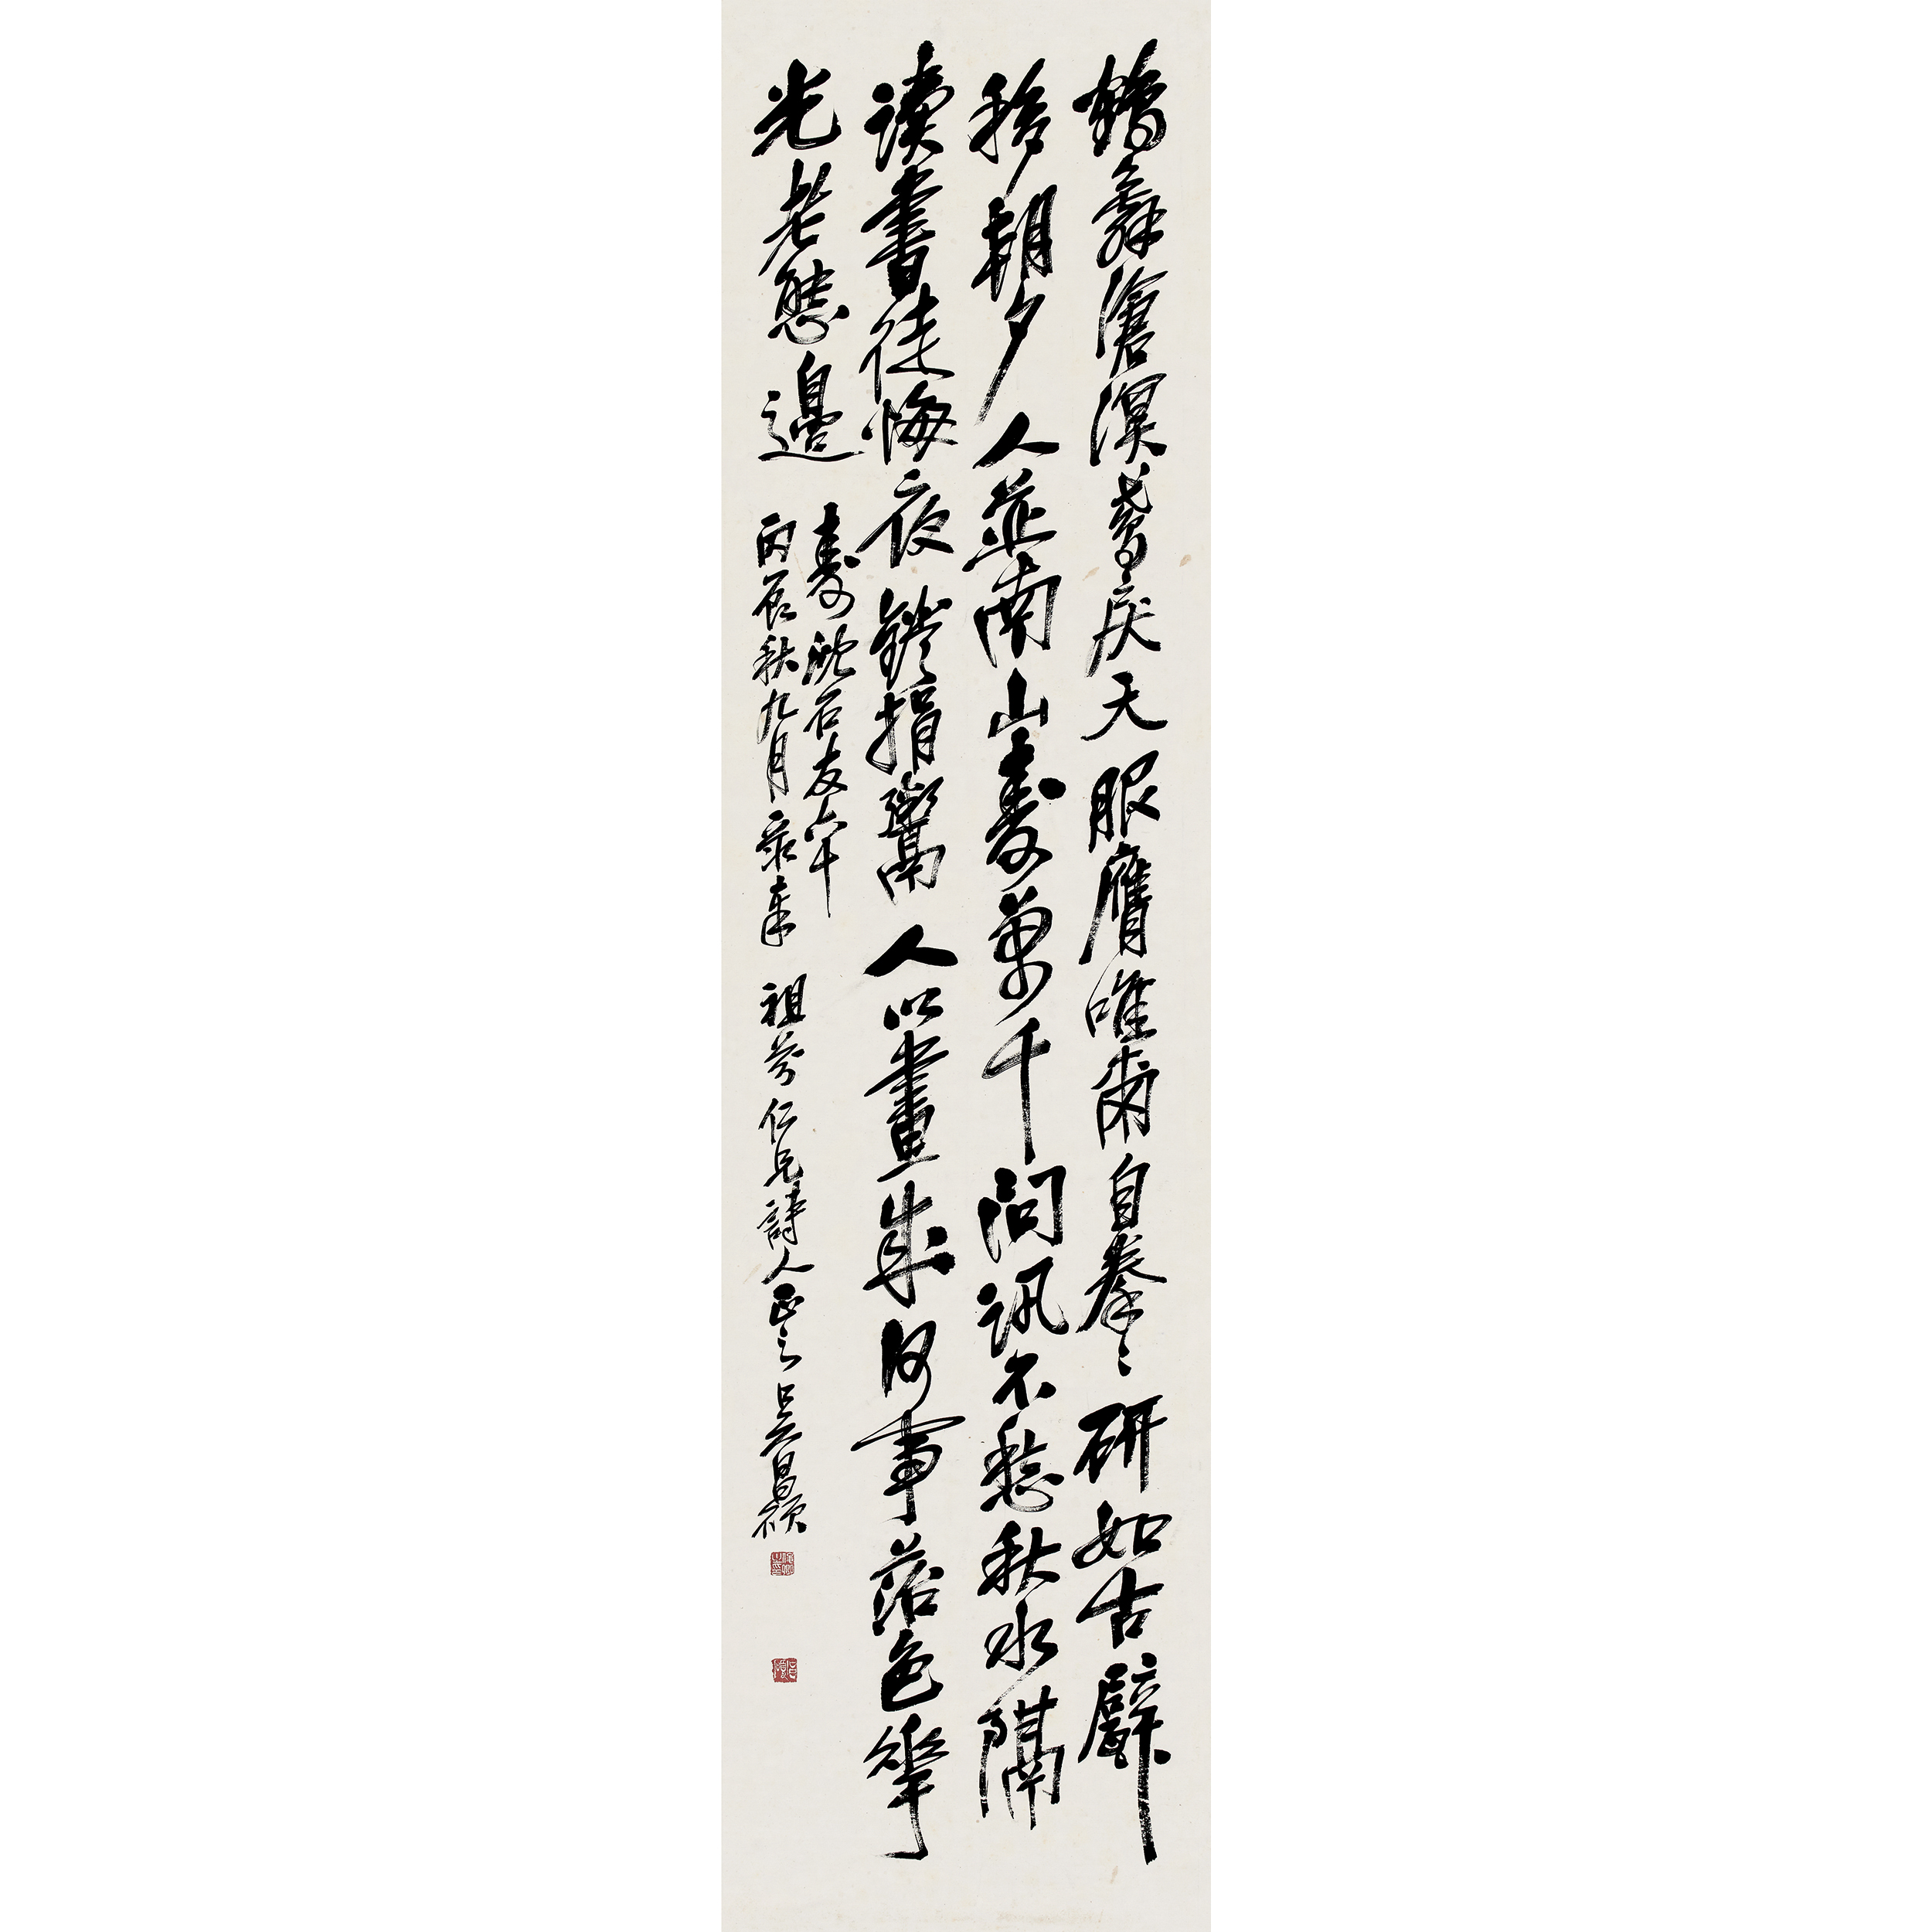 鶴舞滄溟鶯戾天服膺唯爾自拳〻研如古癖
移朝夕人並南山壽萬千問訊不愁秋水隔
讀書徒悔夜鐙捐鬻人以畫成何事落色華
光老態邊
壽沈石友六十
丙辰秋九月录奉祖芬仁兄詩人正之吳昌碩